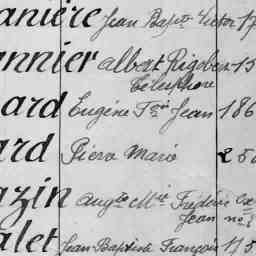 anière Jean Bapte Victor 17
annier Albert Rigobert 15
Télesphore
ard Eugène Foi Jean 186
ard Pierre Marie 250
azin Augte Mie Frédéric
Jean no
alet Jean Baptiste François 175